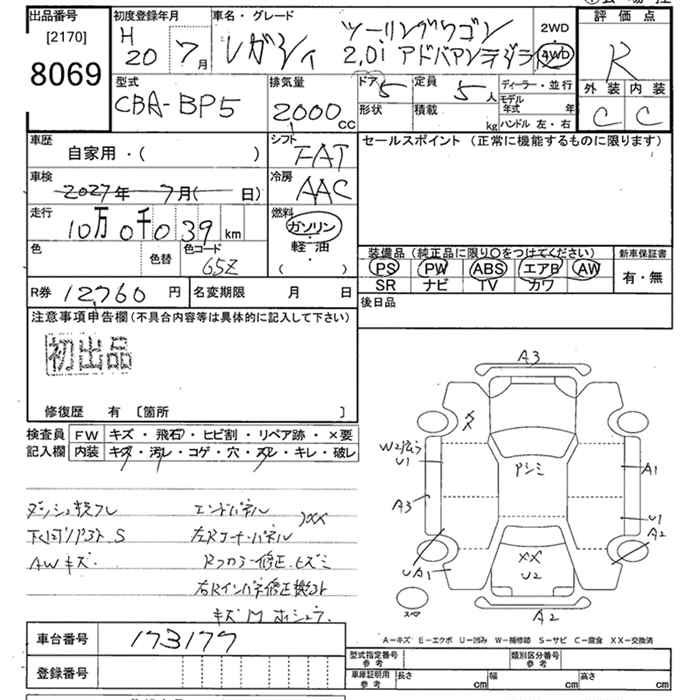 出品番号
[2170]
8069
初度登録年月
H
20 7月
車名・グレード
レガシィ ツーリングワゴン
2.0i アドバンテージラ
2WD
4WD
評価点
R
外装 内装
C C
型式
CBA-BP5
排気量
2000cc
ドア 5
形状
定員 5人
積載 kg
ディーラー・並行
モデル年式 年
ハンドル 左・右
車歴
自家用・( )
シフト
FAT
セールスポイント (正常に機能するものに限ります)
車検
2027年 7月( 日)
冷房
AAC
走行
10万0千039km
燃料
ガソリン
・
軽油
・
( )
色
色替
色コード
65Z
装備品 (純正品に限り〇をつけてください)
PS PW ABS エアB AW
SR ナビ TV カワ
新車保証書
有・無
R券 12,760円
名変期限 月 日
後日品
注意事項申告欄(不具合内容等は具体的に記入して下さい)
初出品
修復歴 有 [箇所 ]
検査員
記入欄
FW キズ・飛石・ヒビ割・リペア跡・×要
内装 キズ・汚レ・コゲ・穴・スレ・キレ・破レ
下回リ S
AWキズ
エンドパネル XX
左Rコーナーパネル
Rフロアー修正ヒズミ
キズM
A3
W2
U1
A3
UA1
アシミ
XX
U2
A1
U1
A2
A2
スペア
A-キズ E-エクボ U-凹み W-補修跡 S-サビ C-腐食 XX-交換済
車台番号 173177
登録番号
型式指定番号
参考
類別区分番号
参考
車庫証明用
参考
長さ cm
幅 cm
高さ cm